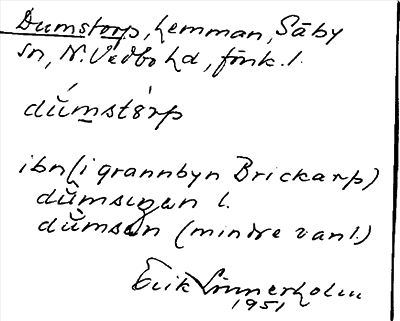 Dumstorp, hemman, Säby
sn, N. Vedbo hd, fönk. l.
dŭ́mstò̈rp
ibn (i grannbyn Brickarp)
dŭmsıgən l.
dŭmsən (mindre vanl.)
Erik Linnerholm
1951